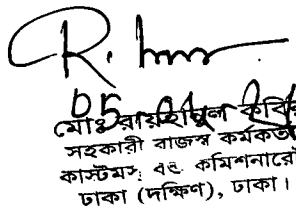 মোঃ রায়হানুল কবির
সহকারী রাজস্ব কর্মকর্তা
কাস্টমস, বন্ড কমিশনারেট
ঢাকা (দক্ষিণ), ঢাকা।